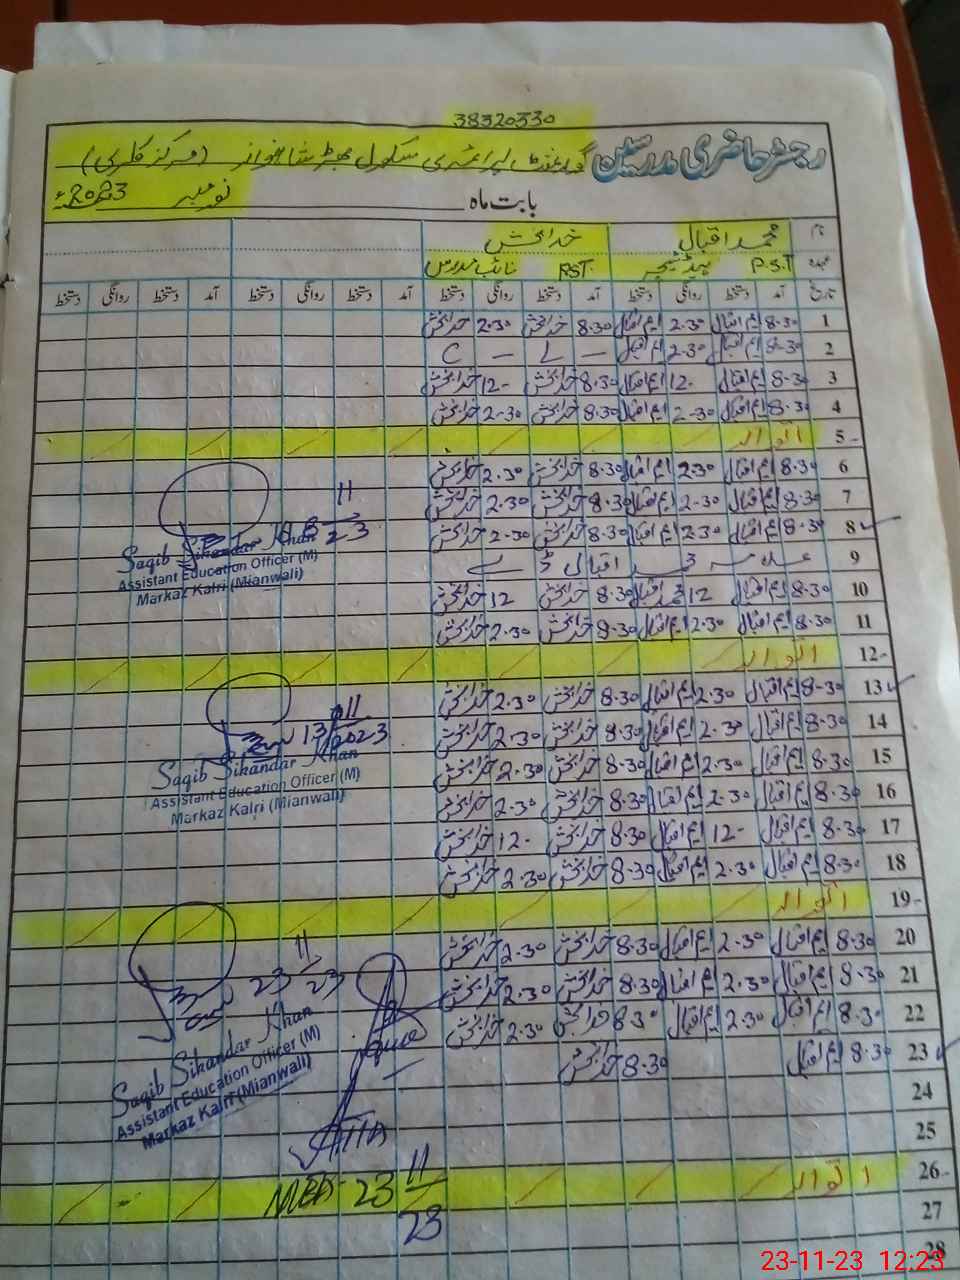 38320330
رجسٹر حاضری مدرسین گورنمنٹ پرائمری سکول شاہنواز (مرکز کلری)
بابت ماہ نومبر 2023ء
نام محمد اقبال خدابخش
عہدہ P.S.T ہیڈ ٹیچر PST. نائب مدرس
تاریخ آمد دستخط روانگی دستخط آمد دستخط روانگی دستخط آمد دستخط روانگی دستخط آمد دستخط روانگی دستخط
1 8-30 ایم اقبال 2.30 ایم اقبال 8.30 خدابخش 2.30 خدابخش
2 8-30 ایم اقبال 2.30 ایم اقبال — L — C
3 8-30 ایم اقبال 12- ایم اقبال 8.30 خدابخش 12- خدابخش
4 8.30 ایم اقبال 2-30 ایم اقبال 8.30 خدابخش 2-30 خدابخش
5- اتوار
6 8.30 ایم اقبال 2.30 ایم اقبال 8.30 خدابخش 2.30 خدابخش
7 8.30 ایم اقبال 2-30 ایم اقبال 8.30 خدابخش 2.30 خدابخش
8 8.30 ایم اقبال 2.30 ایم اقبال 8.30 خدابخش 2-30 خدابخش
9 علامہ محمد اقبال ڈے
10 8.30 ایم اقبال 12 محمد اقبال 8.30 خدابخش 12 خدابخش
11 8.30 ایم اقبال 2.30 ایم اقبال 8.30 خدابخش 2.30 خدابخش
12- اتوار
13 8-30 ایم اقبال 2.30 ایم اقبال 8.30 خدابخش 2.30 خدابخش
14 8.30 ایم اقبال 2.30 ایم اقبال 8.30 خدابخش 2.30 خدابخش
15 8.30 ایم اقبال 2.30 ایم اقبال 8.30 خدابخش 2.30 خدابخش
16 8.30 ایم اقبال 2.30 ایم اقبال 8.30 خدابخش 2.30 خدابخش
17 8.30 ایم اقبال 12- ایم اقبال 8.30 خدابخش 12- خدابخش
18 8.30 ایم اقبال 2.30 ایم اقبال 8.30 خدابخش 2.30 خدابخش
19- اتوار
20 8.30 ایم اقبال 2.30 ایم اقبال 8.30 خدابخش 2.30 خدابخش
21 8.30 ایم اقبال 2.30 ایم اقبال 8.30 خدابخش 2.30 خدابخش
22 8.30 ایم اقبال 2.30 ایم اقبال 8.30 خدابخش 2.30 خدابخش
23 8.30 ایم اقبال 8.30 خدابخش
24
25
26- اتوار
27
28
8 11 23
Saqib Sikandar Khan
Assistant Education Officer (M)
Markaz Kalri (Mianwali)
13/11/2023
Saqib Sikandar Khan
Assistant Education Officer (M)
Markaz Kalri (Mianwali)
23 11 23
Saqib Sikandar Khan
Assistant Education Officer (M)
Markaz Kalri (Mianwali)
23 11 23
23-11-23 12:23